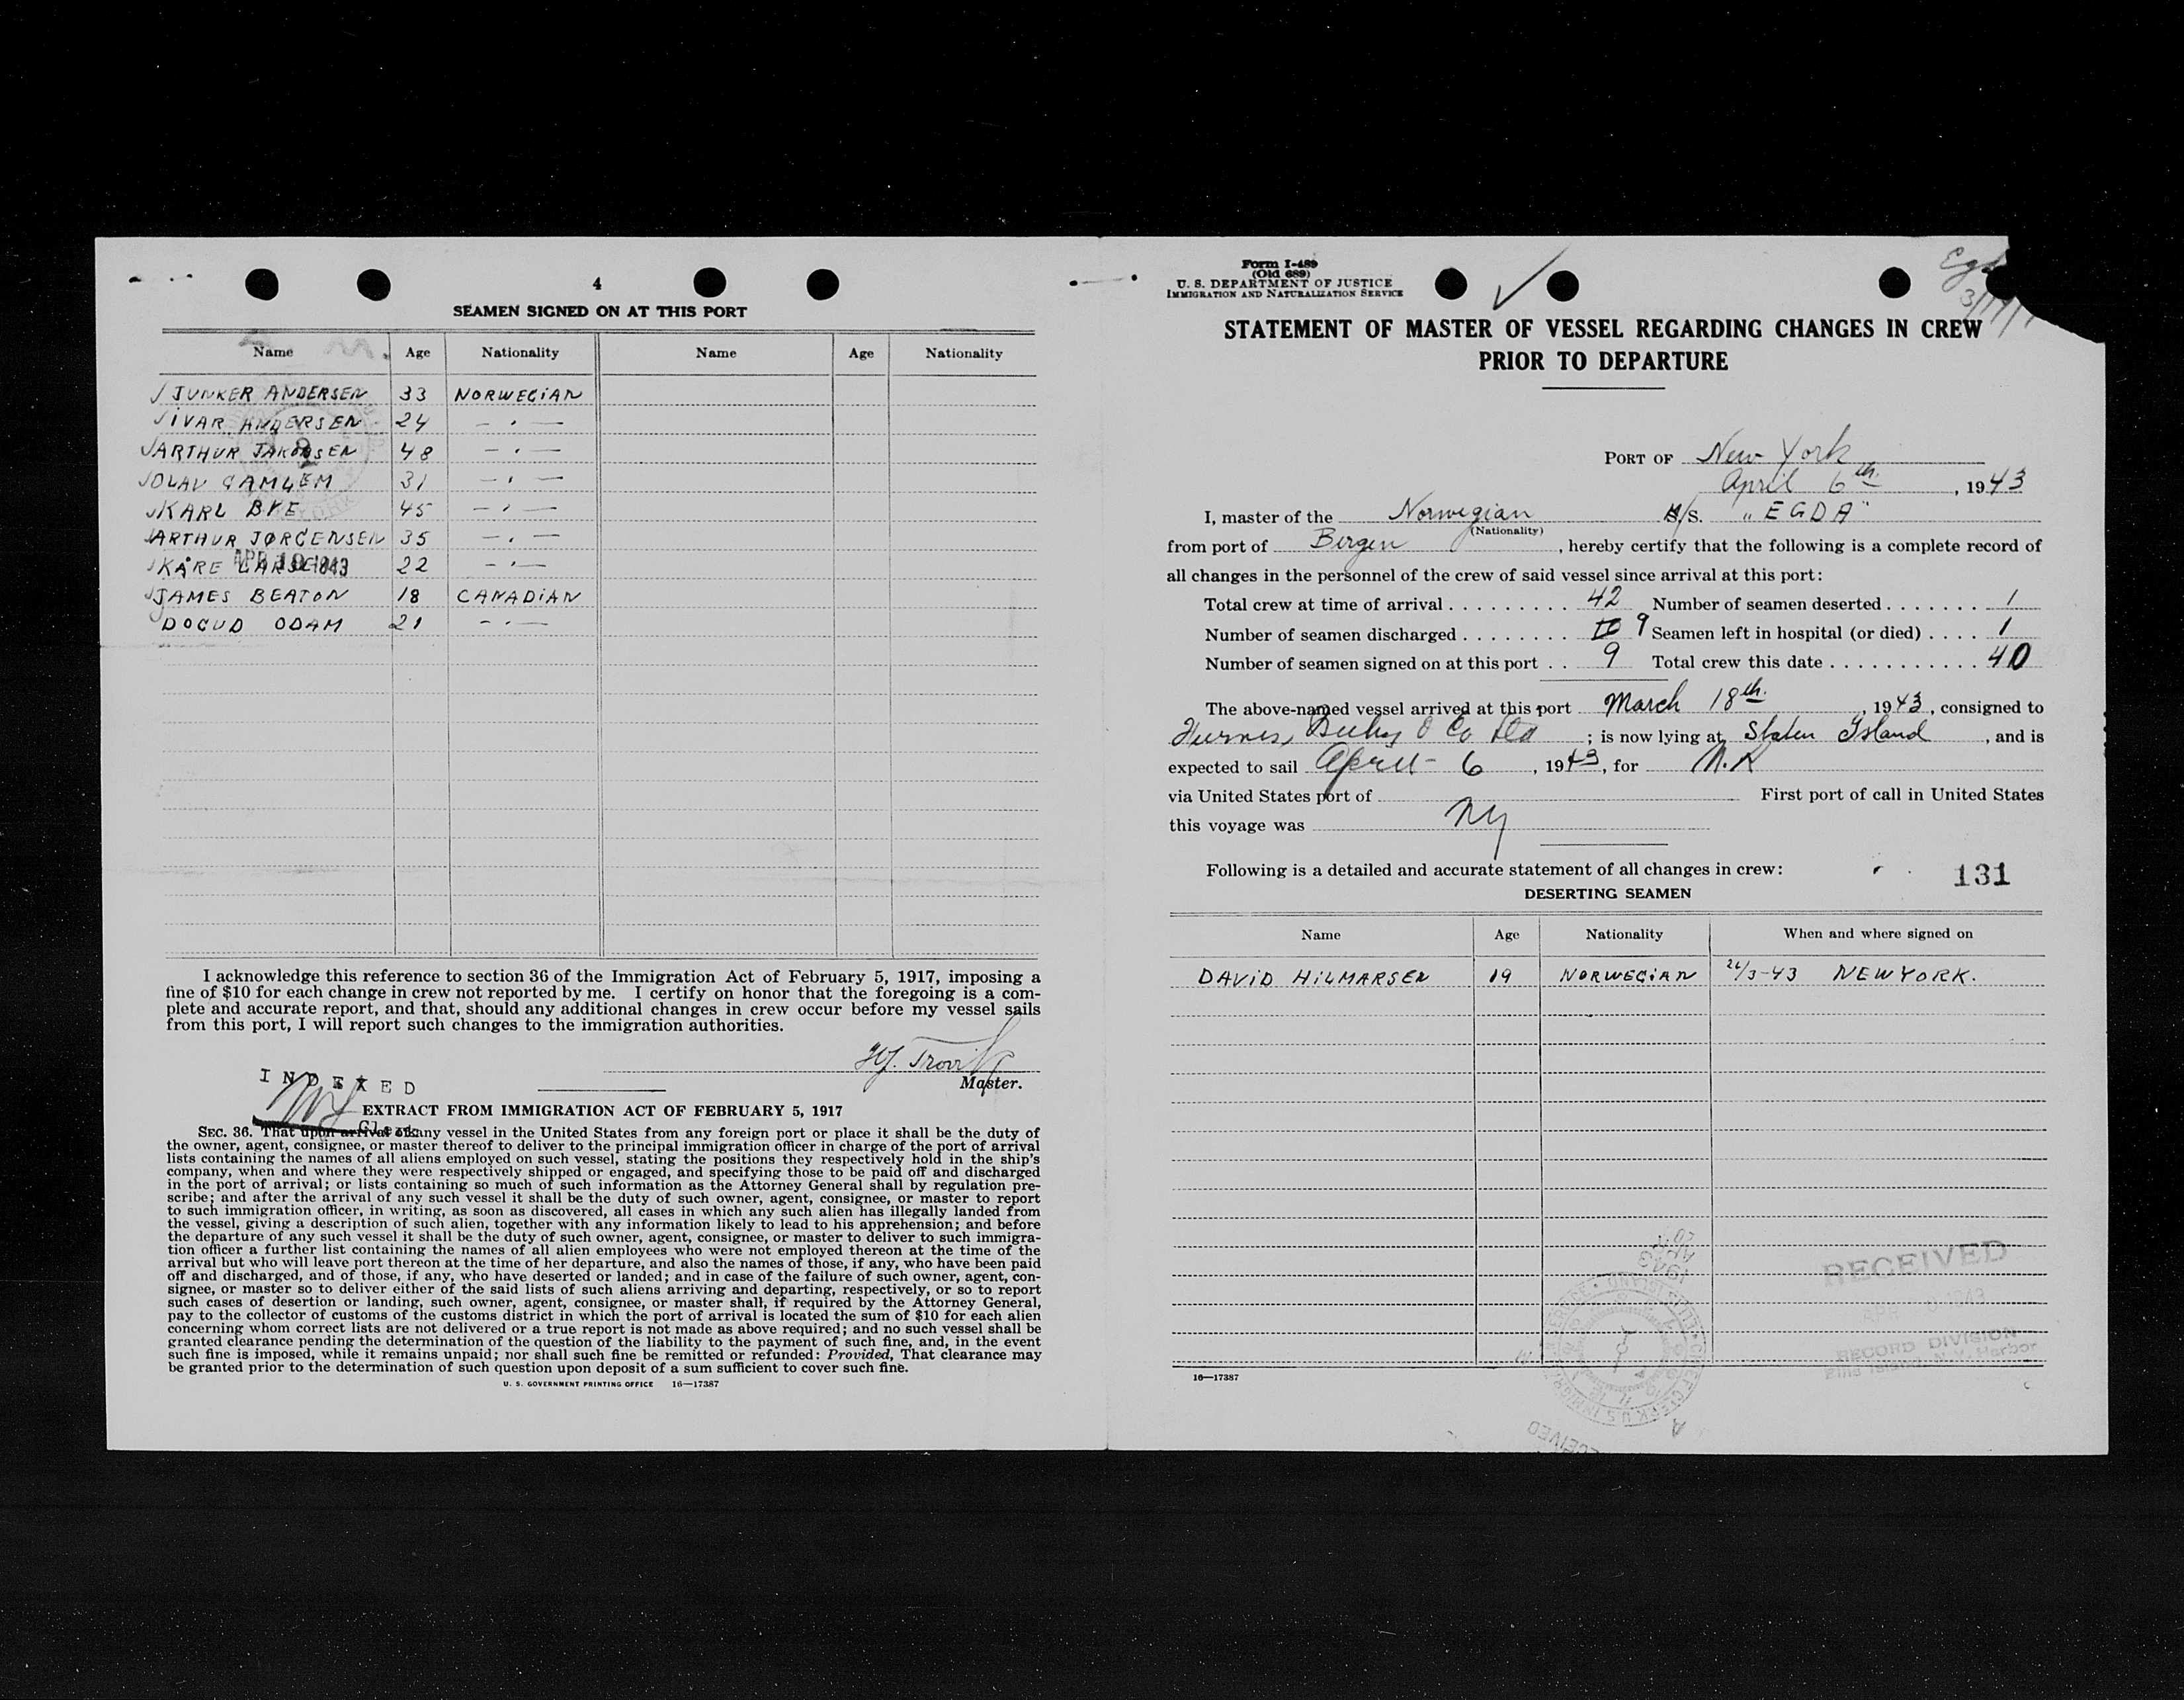 4
SEAMEN SIGNED ON AT THIS PORT
Name Age Nationality Name Age Nationality
JUNKER ANDERSEN 33 NORWEGIAN
IVAR ANDERSEN 24 - " -
ARTHUR JAKOBSEN 48 - " -
OLAV GAMLEM 31 - " -
KARL BYE 45 - " -
ARTHUR JØRGENSEN 35 - " -
KÅRE LARSEN 22 - " -
APR 10 1943
JAMES BEATON 18 CANADIAN
DOGUD ODAM 21 - " -
I acknowledge this reference to section 36 of the Immigration Act of February 5, 1917, imposing a
fine of $10 for each change in crew not reported by me. I certify on honor that the foregoing is a com-
plete and accurate report, and that, should any additional changes in crew occur before my vessel sails
from this port, I will report such changes to the immigration authorities.
Master.
INDEXED
EXTRACT FROM IMMIGRATION ACT OF FEBRUARY 5, 1917
Clerk
SEC. 36. That upon arrival of any vessel in the United States from any foreign port or place it shall be the duty of
the owner, agent, consignee, or master thereof to deliver to the principal immigration officer in charge of the port of arrival
lists containing the names of all aliens employed on such vessel, stating the positions they respectively hold in the ship's
company, when and where they were respectively shipped or engaged, and specifying those to be paid off and discharged
in the port of arrival; or lists containing so much of such information as the Attorney General shall by regulation pre-
scribe; and after the arrival of any such vessel it shall be the duty of such owner, agent, consignee, or master to report
to such immigration officer, in writing, as soon as discovered, all cases in which any such alien has illegally landed from
the vessel, giving a description of such alien, together with any information likely to lead to his apprehension; and before
the departure of any such vessel it shall be the duty of such owner, agent, consignee, or master to deliver to such immigra-
tion officer a further list containing the names of all alien employees who were not employed thereon at the time of the
arrival but who will leave port thereon at the time of her departure, and also the names of those, if any, who have been paid
off and discharged, and of those, if any, who have deserted or landed; and in case of the failure of such owner, agent, con-
signee, or master so to deliver either of the said lists of such aliens arriving and departing, respectively, or so to report
such cases of desertion or landing, such owner, agent, consignee, or master shall, if required by the Attorney General,
pay to the collector of customs of the customs district in which the port of arrival is located the sum of $10 for each alien
concerning whom correct lists are not delivered or a true report is not made as above required; and no such vessel shall be
granted clearance pending the determination of the question of the liability to the payment of such fine, and, in the event
such fine is imposed, while it remains unpaid; nor shall such fine be remitted or refunded: Provided, That clearance may
be granted prior to the determination of such question upon deposit of a sum sufficient to cover such fine.
U. S. GOVERNMENT PRINTING OFFICE 16—17387
Form I-489
(Old 689)
U. S. DEPARTMENT OF JUSTICE
IMMIGRATION AND NATURALIZATION SERVICE
STATEMENT OF MASTER OF VESSEL REGARDING CHANGES IN CREW
PRIOR TO DEPARTURE
PORT OF New York
April 6th, 1943
I, master of the Norwegian M/S. "EGDA"
(Nationality)
from port of Bergen, hereby certify that the following is a complete record of
all changes in the personnel of the crew of said vessel since arrival at this port:
Total crew at time of arrival . . . . . . . . . 42 Number of seamen deserted . . . . . . . 1
Number of seamen discharged . . . . . . . . 10 9 Seamen left in hospital (or died) . . . . 1
Number of seamen signed on at this port . . 9 Total crew this date . . . . . . . . . . . . 40
The above-named vessel arrived at this port March 18th, 1943, consigned to
Furness, & Co Ltd ; is now lying at Staten Island, and is
expected to sail April 6, 1943, for
via United States port of First port of call in United States
this voyage was NY
Following is a detailed and accurate statement of all changes in crew:
131
DESERTING SEAMEN
Name Age Nationality When and where signed on
DAVID HILMARSEN 19 NORWEGIAN 26/3-43 NEW YORK.
RECEIVED
RECORD DIVISION
Ellis Island, N.Y. Harbor
16—17387